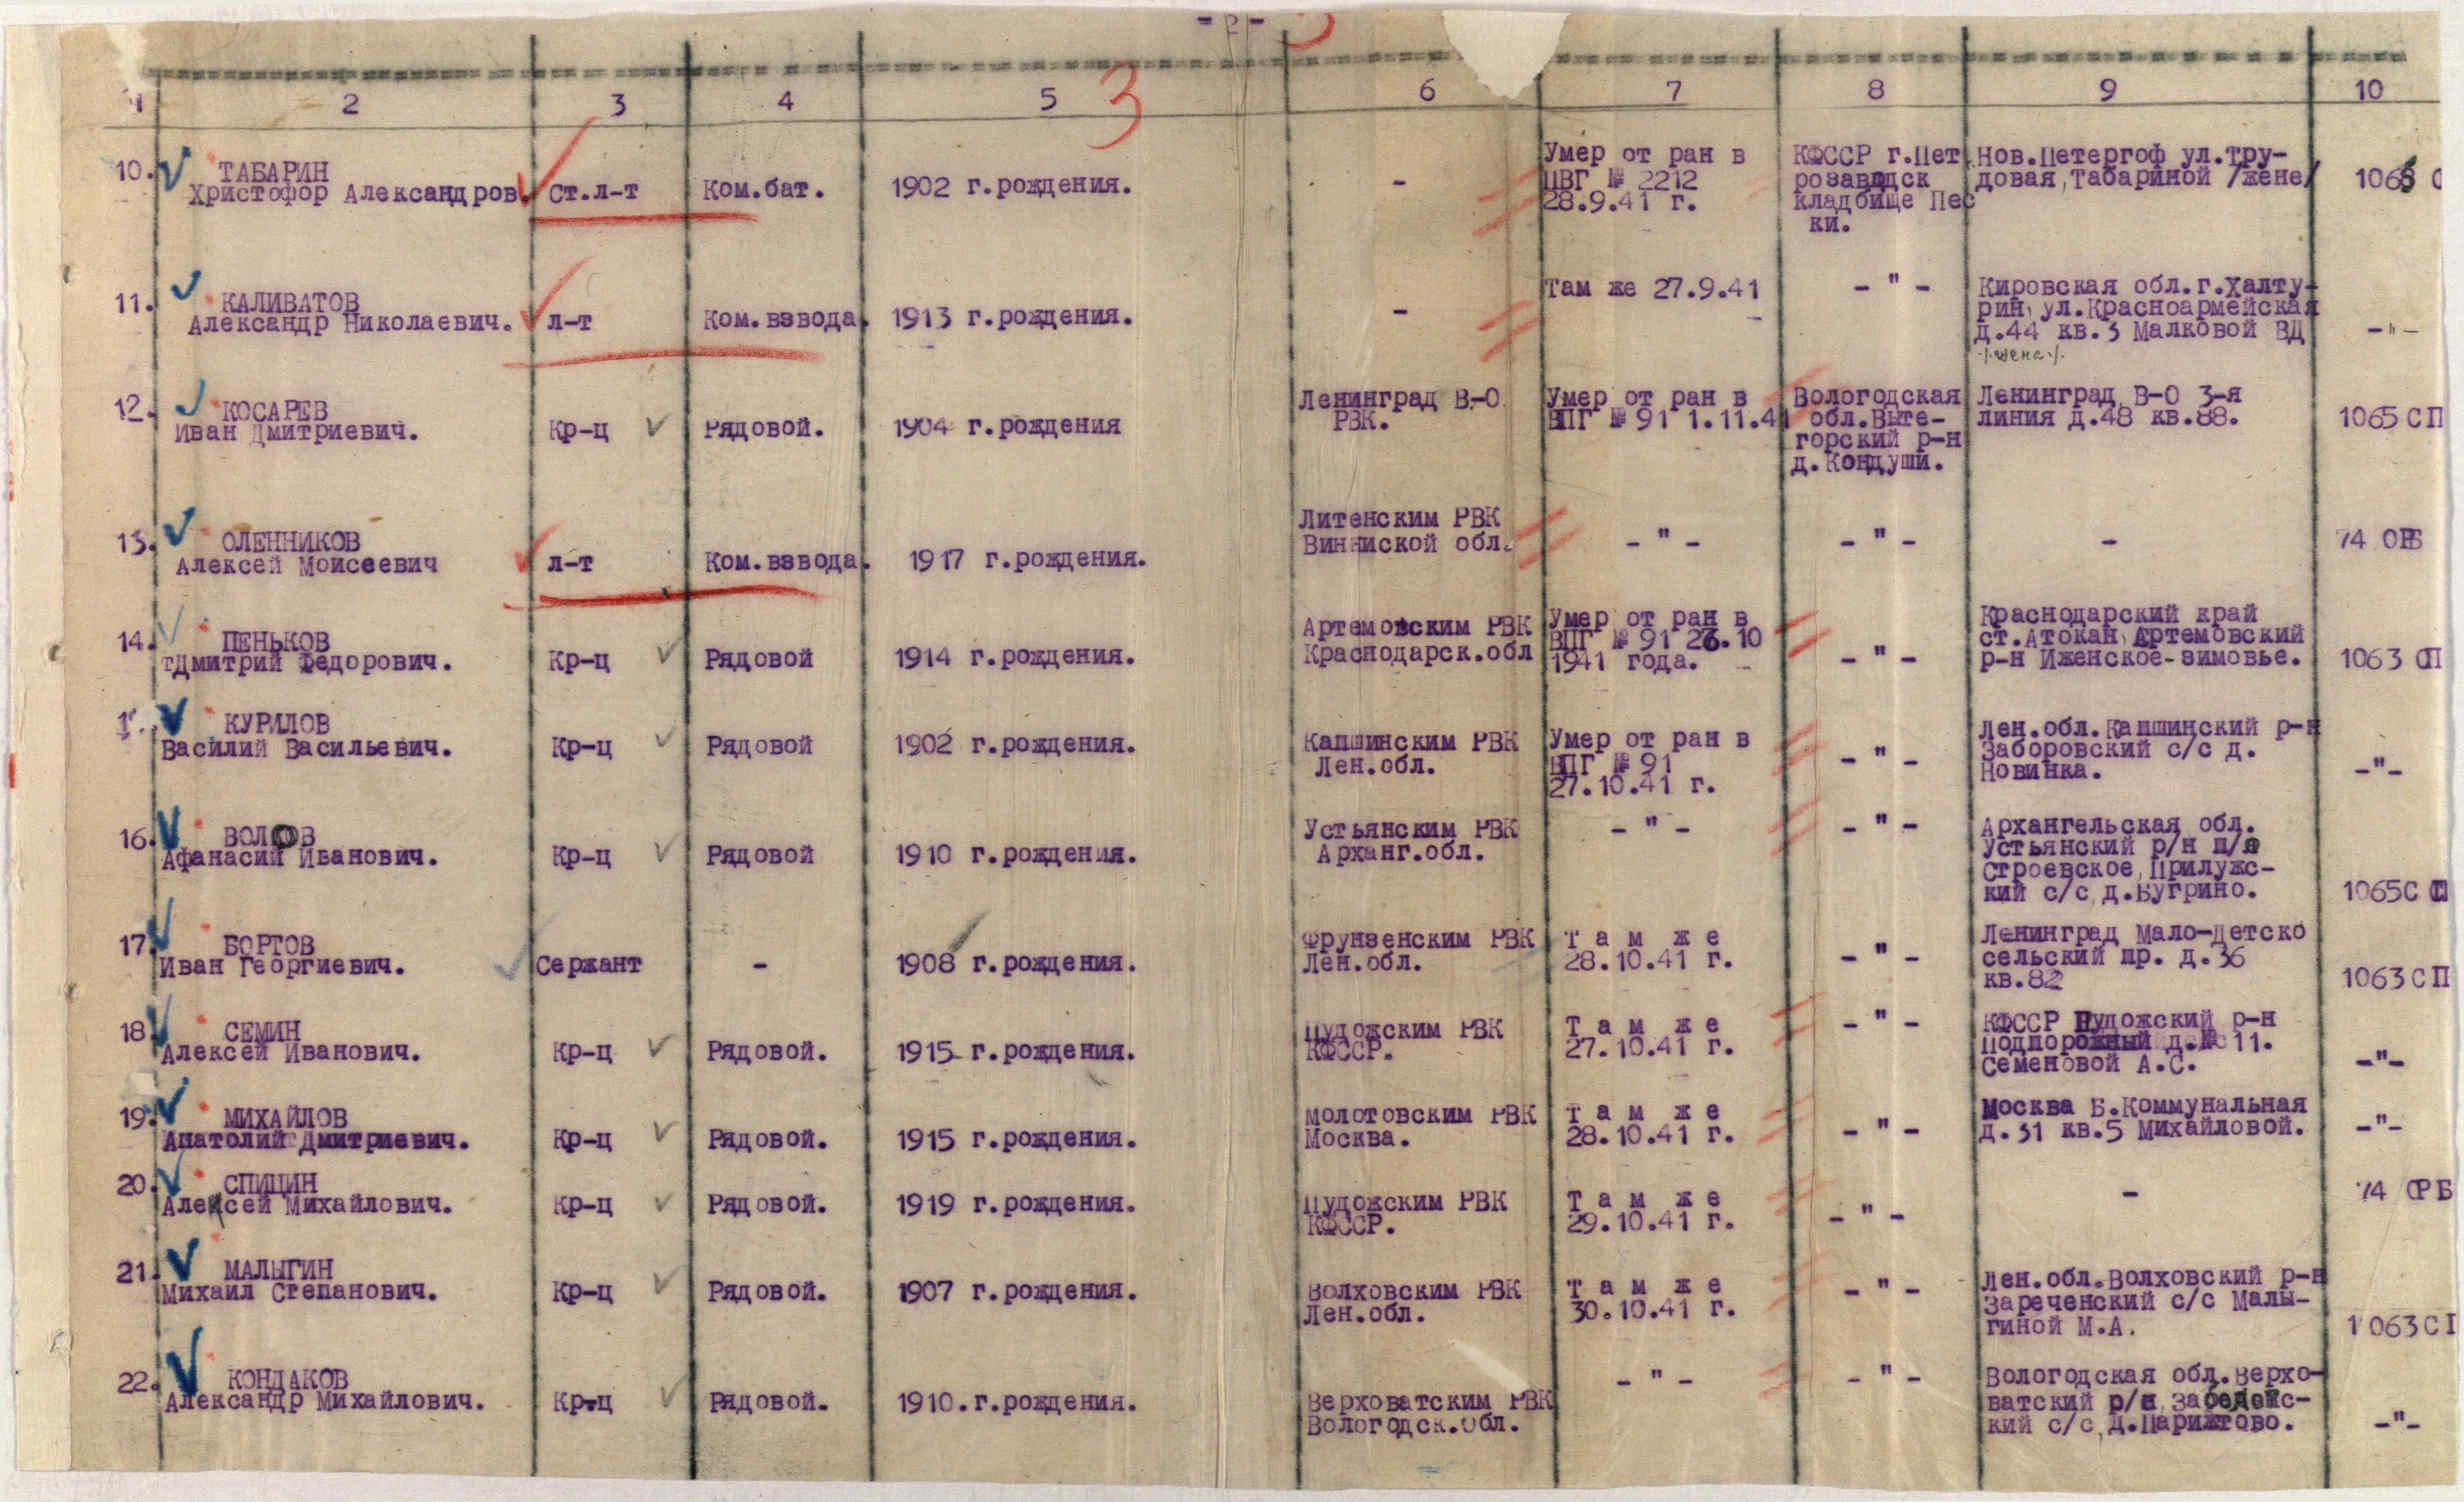 - 2 - 3
1 2 3 4 5 3 6 7 8 9 10
10. ТАБАРИН
Христофор Александров.
Ст.л-т
Ком.бат.
1902 г.рождения.
-
Умер от ран в
ЦВГ № 2212
28.9.41 г.
КФССР г.Пет
розаводск
кладбище Пес
ки.
Нов.Петергоф ул.Тру-
довая,Табариной /жене/
1065 С
11. КАЛИВАТОВ
Александр Николаевич.
л-т
Ком.взвода.
1913 г.рождения.
-
Там же 27.9.41
- " -
Кировская обл.г.Халту-
рин,ул.Красноармейская
д.44 кв.3 Малковой ВД
/.жена./.
-"-
12. КОСАРЕВ
Иван Дмитриевич.
Кр-ц
Рядовой.
1904 г.рождения
Ленинград В.-О
РВК.
Умер от ран в
ППГ № 91 1.11.41
Вологодская
обл.Выте-
горский р-н
д.Кондуши.
Ленинград В-О 3-я
линия д.48 кв.88.
1065 СП
13. ОЛЕННИКОВ
Алексей Моисеевич
л-т
Ком.взвода.
1917 г.рождения.
Литенским РВК
Винниской обл.
- " -
- " -
-
74 ОРБ
14. ПЕНЬКОВ
Дмитрий Федорович.
Кр-ц
Рядовой
1914 г.рождения.
Артемовским РВК
Краснодарск.обл
Умер от ран в
ППГ № 91 26.10
1941 года.
- " -
Краснодарский край
ст.Атокан,Артемовский
р-н Иженское-зимовье.
1063 СП
КУРИЛОВ
Василий Васильевич.
Кр-ц
Рядовой
1902 г.рождения.
Капшинским РВК
Лен.обл.
Умер от ран в
ППГ № 91
27.10.41 г.
- " -
Лен.обл.Капшинский р-н
Заборовский с/с д.
Новинка.
-"-
16. ВОЛОВ
Афанасий Иванович.
Кр-ц
Рядовой
1910 г.рождения.
Устьянским РВК
Арханг.обл.
- " -
- " -
Архангельская обл.
Устьянский р/н п/я
Строевское,Прилужс-
кий с/с,д.Бугрино.
1065С СП
17. БОРТОВ
Иван Георгиевич.
Сержант
-
1908 г.рождения.
Фрунзенским РВК
Лен.обл.
Т а м ж е
28.10.41 г.
- " -
Ленинград Мало-Детско
сельский пр. д.36
кв.82
1063 СП
18 СЕМИН
Алексей Иванович.
Кр-ц
Рядовой.
1915 г.рождения.
Пудожским РВК
КФССР.
Т а м ж е
27.10.41 г.
- " -
КФССР Пудожский р-н
Подпорожный д.№ 11.
Семеновой А.С.
-"-
19. МИХАЙЛОВ
Анатолий Дмитриевич.
Кр-ц
Рядовой.
1915 г.рождения.
Молотовским РВК
Москва.
Т а м ж е
28.10.41 г.
- " -
Москва Б.Коммунальная
д.31 кв.5 Михайловой.
-"-
20. СПИЦИН
Алексей Михайлович.
Кр-ц
Рядовой.
1919 г.рождения.
Пудожским РВК
КФССР.
Т а м ж е
29.10.41 г.
- " -
-
74 ОРБ
21. МАЛЫГИН
Михаил Степанович.
Кр-ц
Рядовой.
1907 г.рождения.
Волховским РВК
Лен.обл.
Т а м ж е
30.10.41 г.
- " -
Лен.обл.Волховский р-н
Зареченский с/с Малы-
гиной М.А.
1063 С
22. КОНДАКОВ
Александр Михайлович.
Кр-ц
Рядовой.
1910.г.рождения.
Верховатским РВК
Вологодск.обл.
- " -
- " -
Вологодская обл.Верхо-
ватский р/н
кий с/с,
-"-